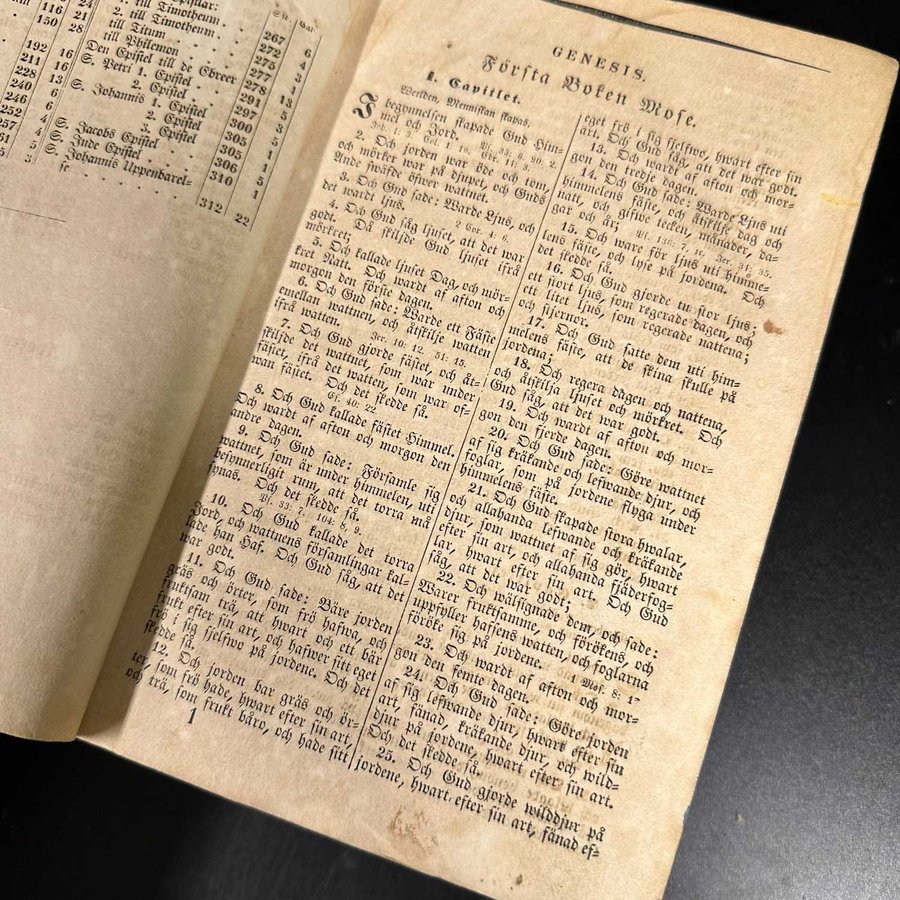 till Timotheum .
2. till Timotheum .
till Titum
till Philemon
Den Epistel till de Ebreer
S. Petri 1. Epistel
2. Epistel
S. Johannis 1. Epistel
2. Epistel
3. Epistel
S. Jacobs Epistel
S. Judæ Epistel
S. Johannis Uppenbarel-
se
267 6
272 4
275 3
277 1
278 13
291 5
297 3
300 5
305 1
305 1
306 5
310 1
312 22
116 24
150 28
192 16
211 16
228 13
240 6
246 6
252 4
GENESIS.
Första Boken Mose.
1. Capitlet.
Werlden, Menniskan skapas.
I begynnelsen skapade Gud Him-
mel och Jord.
2. Och jorden war öde och tom,
och mörker war på djupet, och Guds
Ande swäfde öfwer wattnet.
3. Och Gud sade: Warde Ljus, och
det wardt ljus. 2 Cor. 4. 6.
4. Och Gud såg ljuset, att det war
godt. Då skiljde Gud ljuset ifrå
mörkret;
5. Och kallade ljuset Dag, och mör-
kret Natt. Och wardt af afton och
morgon den förste dagen.
6. Och Gud sade: Warde ett Fäste
emellan wattnen, och åtskilje watten
ifrå watten. Jer. 10: 12. 51: 15.
7. Och Gud gjorde fästet, och åt-
skiljde det wattnet, som war under
fästet, ifrå det watten, som war of-
wan fästet. Och det skedde så.
Es. 40: 22.
8. Och Gud kallade fästet Himmel.
Och wardt af afton och morgon den
andre dagen.
9. Och Gud sade: Församle sig
wattnet, som är under himmelen, uti
besynnerligit rum, att det torra må
synas. Och det skedde så.
Ps. 33: 7. 104: 8, 9.
10. Och Gud kallade det torra
Jord, och wattnens församlingar kal-
lade han Haf. Och Gud såg, att det
war godt.
11. Och Gud sade: Bäre jorden
gräs och örter, som frö hafwa, och
fruktsam trä, att hwart och ett bär
frukt efter sin art, och hafwer sitt eget
frö i sig sjelfwo på jordene. Och det
skedde så.
12. Och jorden bar gräs och ör-
ter, som frö hade, hwart efter sin art,
och trä, som frukt båro, och hade sitt
1
eget frö i sig sjelfwo, hwart efter sin
art. Och Gud såg, att det war godt.
13. Och wardt af afton och mor-
gon den tredje dagen.
14. Och Gud sade: Warde Ljus uti
himmelens fäste, och åtskilje dag och
natt, och gifwe tecken, månader, da-
gar och år; Ps. 136: 7. Jer. 31: 35.
15. Och ware för ljus uti himme-
lens fäste, och lyse på jordena. Och
det skedde så.
16. Och Gud gjorde tu stor ljus;
ett stort ljus, som regerade dagen, och
ett litet ljus, som regerade nattena;
och stjernor.
17. Och Gud satte dem uti him-
melens fäste, att de skina skulle på
jordena;
18. Och regera dagen och nattena,
och åtskilja ljuset och mörkret. Och
Gud såg, att det war godt.
19. Och wardt af afton och mor-
gon den fjerde dagen.
20. Och Gud sade: Göre wattnet
af sig kräkande och lefwande djur, och
foglar, som på jordene flyga under
himmelens fäste.
21. Och Gud skapade stora hwalar,
och allahanda lefwande och kräkande
djur, som wattnet af sig gör, hwart
efter sin art, och allahanda fjäderfog-
lar, hwart efter sin art. Och Gud
såg, att det war godt;
22. Och wälsignade dem, och sade:
Warer fruktsamme, och förökens, och
uppfyller hafsens watten, och foglarna
föröke sig på jordene.
1 Mos. 8: 17
23. Och wardt af afton och mor-
gon den femte dagen.
24. Och Gud sade: Göre jorden
af sig lefwande djur, hwart efter sin
art, fänad, kräkande djur, och wild-
djur på jordene, hwart efter sin art.
Och det skedde så.
25. Och Gud gjorde wilddjur på
jordene, hwart efter sin art, fänad ef-